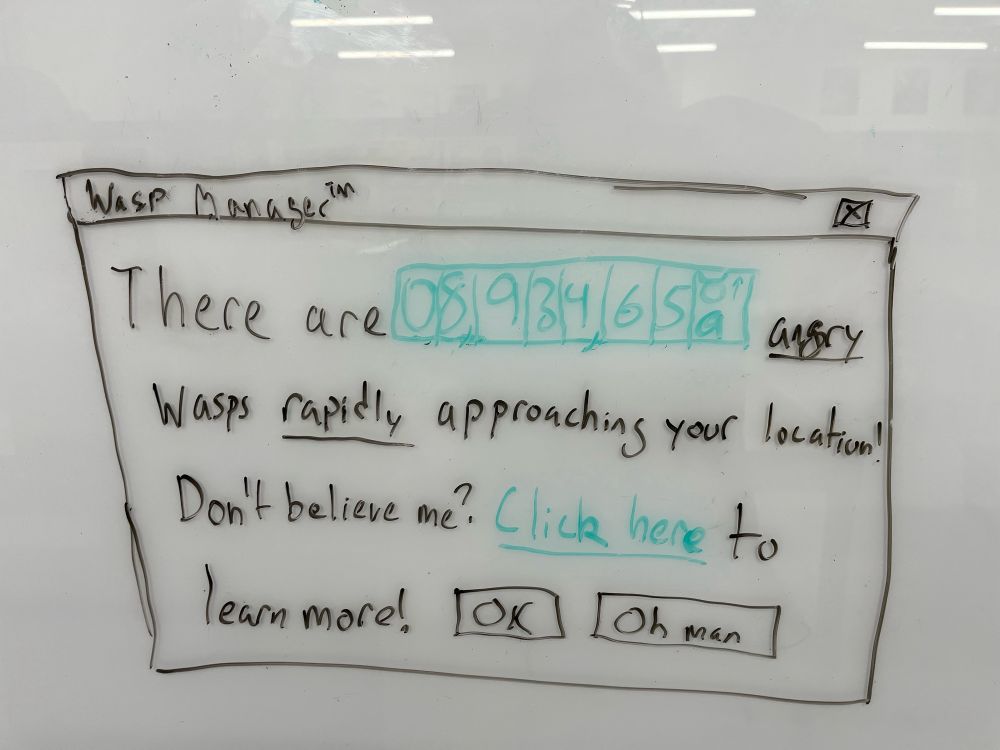 Wasp Manager™
There are 08,934,65 angry
Wasps rapidly approaching your location!
Don't believe me? Click here to
learn more! OK Oh man